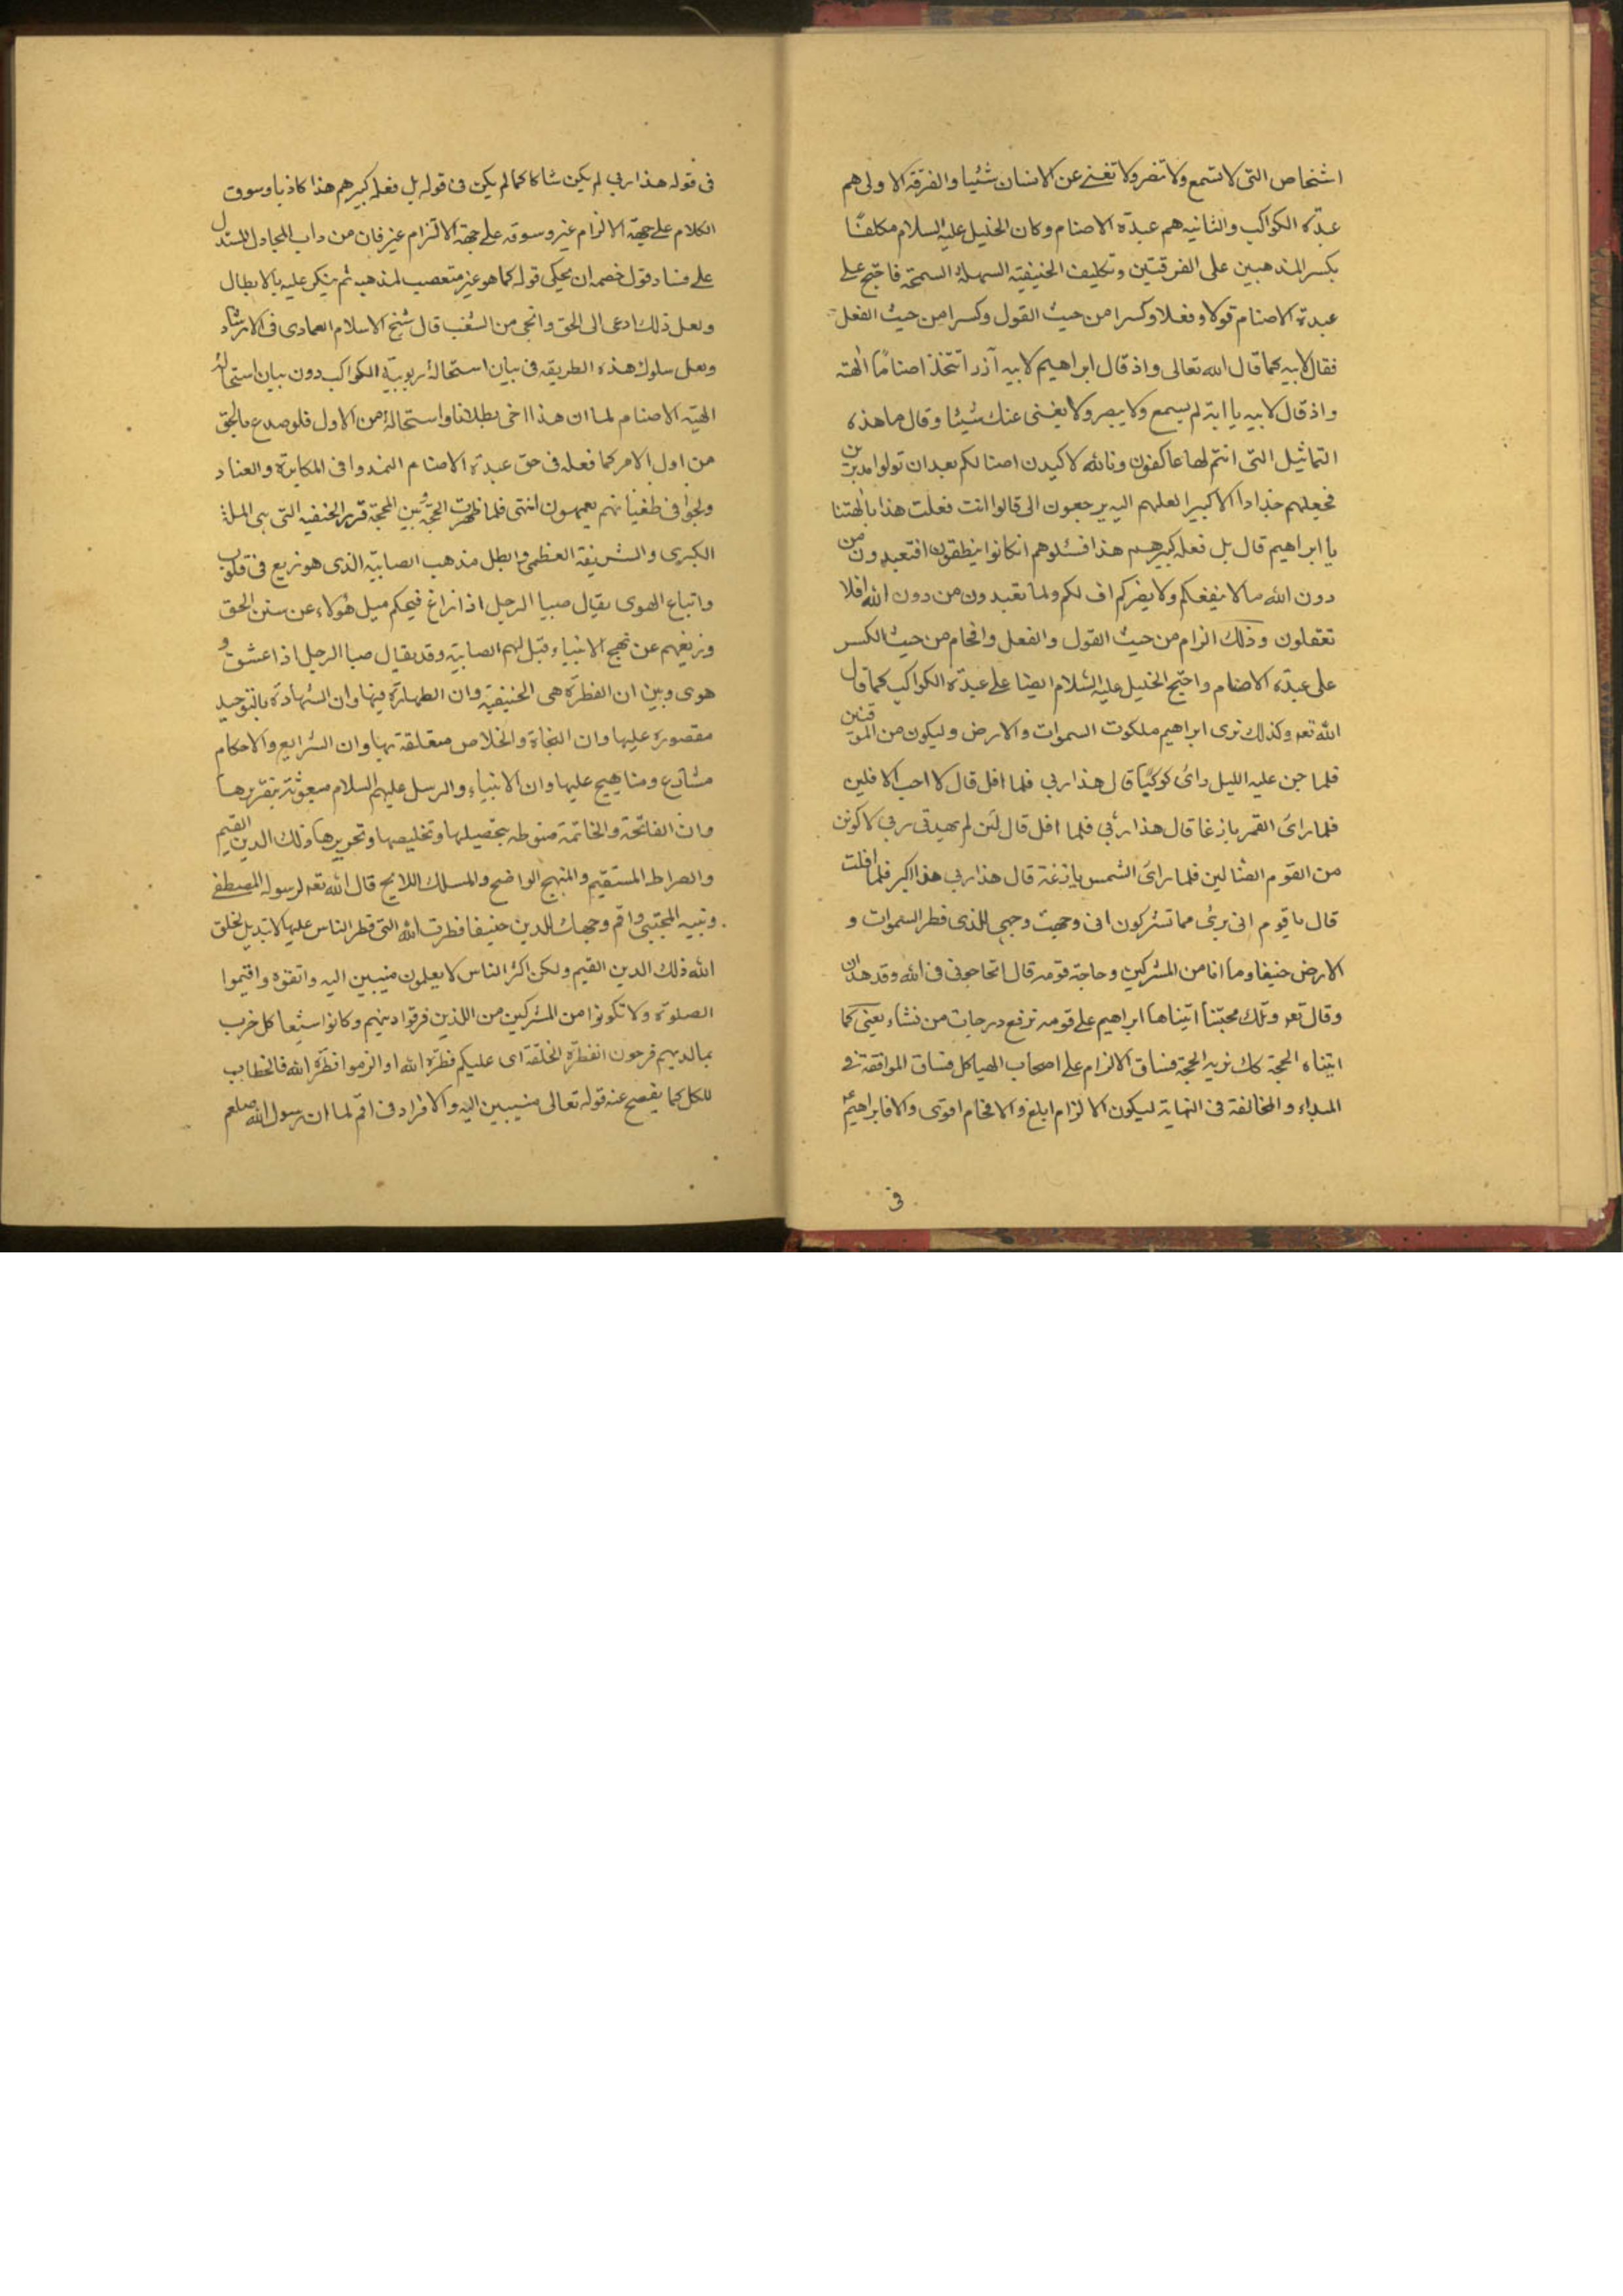 اشخاص التى لا تسمع ولا تضر ولا تغنى عن الانسان شئيا والفرقة الاولى هم
عبدة الكواكب والثانيه هم عبدة الاصنام وكان الخليل عليه السلام مكلفا
بكسر المذهبين على الفرقتين وتكليف الحنيفيه السهلة السمحة فاحتج على
عبدة الاصنام قولا وفعلا وكسرا من حيث القول وكسرا من حيث الفعل
فقال لابيه كما قال الله تعالى واذ قال ابراهيم لابيه آزر اتتخذ اصناما الهته
واذ قال لابيه يا ابة لم يسمع ولا يبصر ولا يغنى عنك شيئا وقال ما هذه
التماثيل التى انتم لها عاكفون وتالله لاكيدن اصنالكم بعد ان تولوا مدبرين
فجعلهم جذاذا الا كبيرا لعلهم اليه يرجعون الى قالوا انت فعلت هذا بالهتنا
يا ابراهيم قال بل فعله كبيرهم هذا فسئلوهم انكانوا ينطقون افتعبدون من
دون الله مالا ينفعكم ولا يضركم اف لكم ولما تعبدون من دون الله افلا
تعقلون وذلك الزام من حيث القول والفعل وافحام من حيث الكسر
على عبدة الاصنام واحتج الخليل عليه السلام ايضا على عبدة الكواكب كما قال
الله تعه وكذلك نرى ابراهيم ملكوت السموات والارض وليكون من الموقنين
فلما جن عليه الليل راى كوكبا قال هذا ربي فلما افل قال لا احب الافلين
فلما راى القمر بازغا قال هذا ربي فلما افل قال لئن لم يهدنى ربي لاكونن
من القوم الضالين فلما راى الشمس بازغة قال هذا ربي هذا اكبر فلما افلت
قال يا قوم انى برئ مما تشركون انى وجهت وجهى للذى فطر السموات و
الارض حنيفا وما انا من المشركين وحاجة قومه قال اتحاجونى فى الله وقد هدان
وقال تعه وتلك حجتنا اتيناها ابراهيم على قومه نرفع درجات من نشاء يعنى كما
اتيناه الحجة كك نريه المحجة فساق الالزام على اصحاب الهياكل فساق الموافقة فى
المبداء والمخالفة فى النهاية ليكون الالزام ابلغ والافحام اقوى والا فابراهيم ع
فى
فى قوله هذا ربي لم يكن شاكا كما لم يكن فى قوله بل فعله كبيرهم هذا كاذبا وسوق
الكلام على جهة الالزام غير وسوقه على جهة الالتزام غير فان من داب المجادل المستدل
على فساد قول خصمه ان يحكى قوله كما هو غير متعصب لمذهبه ثم ينكر عليه بالابطال
ولعل ذلك ادعى الى الحق وانجى من الشغب قال شيخ الاسلام العمادى فى الارشاد
ولعل سلوك هذه الطريقه فى بيان استحالة ربوبية الكواكب دون بيان استحالة
الهية الاصنام لما ان هذا اخفى بطلانا واستحالة من الاول فلو صدع بالحق
من اول الامر كما فعله فى حق عبدة الاصنام لتمدوا فى المكابرة والعناد
ولجوا فى طغيانهم يعمهون انتهى فلما ظهرت الحجة وبين المحجة قرر الحنفيه التى هى الملة
الكبرى والشريفة العظمى وابطل مذهب الصابية الذى هو زيع فى قلوب
واتباع الهوى يقال صبا الرجل اذا زاغ فبحكم ميل هؤلاء عن سنن الحق
وزيغهم عن نهج الانبياء قيل لهم الصابية وقد يقال صبا الرجل اذا عشق و
هوى وبين ان الفطرة هى الحنيفية وان الطهارة فيها وان الشهادة بالتوحيد
مقصورة عليها وان النجاة والخلاص متعلقة بها وان الشرايع والاحكام
مشارع ومناهيج عليها وان الانبياء والرسل عليهم السلام مبعوثة بتقريرها
وان الفاتحة والخاتمة منوطه بتحصيلها وتخليصها وتحريرها ذلك الدين القيم
والصراط المستقيم والمنهج الواضح والمسلك اللايح قال الله تعه لرسوله المصطفى
ونبيه المجتبى واقم وجهك للدين حنيفا فطرت الله التى فطر الناس عليها لا تبديل لخلق
الله ذلك الدين القيم ولكن اكثر الناس لا يعلمون منيبين اليه واتقوه واقيموا
الصلوة ولا تكونوا من المشركين من اللذين فرقوا دينهم وكانوا شيعا كل حزب
بما لديهم فرحون الفطرة الخلقة اى عليكم فطرة الله او الزموا فطرة الله فالخطاب
للكل كما يفصح عنه قوله تعالى منيبين اليه والافراد فى اقم لما ان رسول الله صلعم